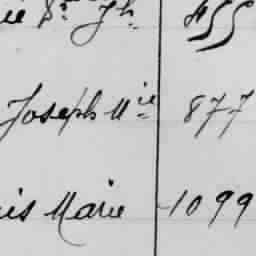 ie St Jh 455
Joseph Mie 877
is Marie 1099